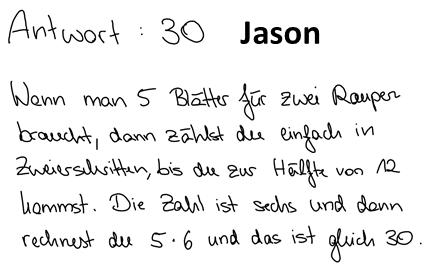 Antwort : 30 Jason
Wenn man 5 Blätter für zwei Raupen
braucht, dann zählst du einfach in
Zweierschritten, bis du zur Hälfte von 12
kommst. Die Zahl ist sechs und dann
rechnest du 5 · 6 und das ist gleich 30.